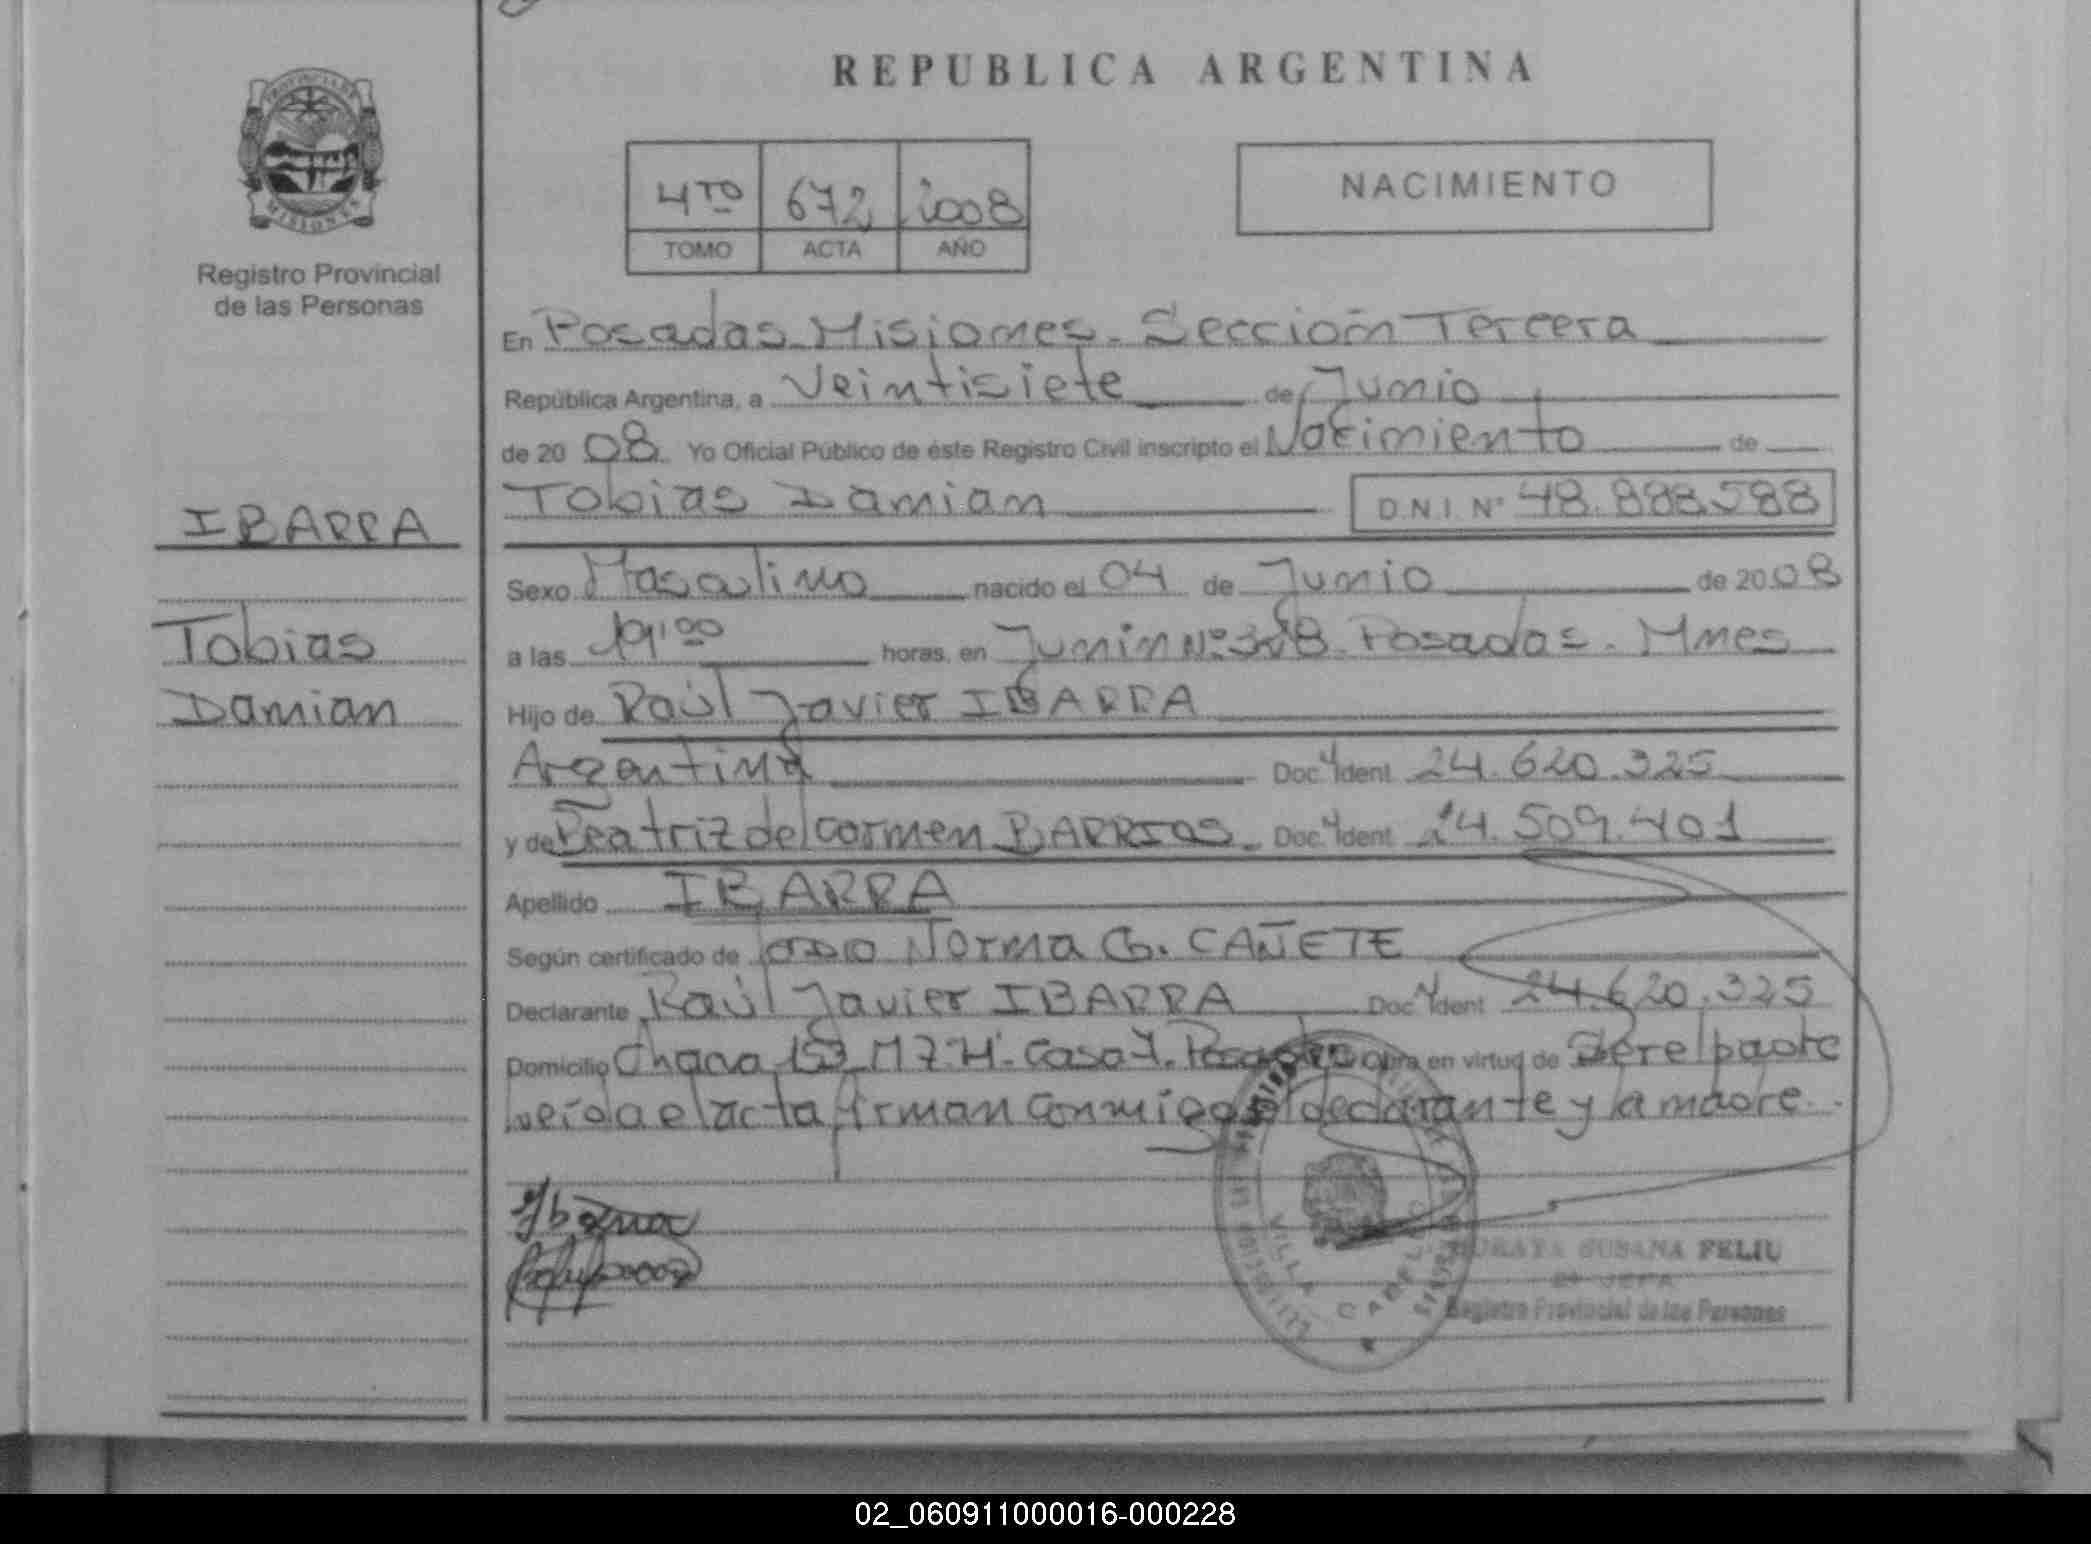 REPUBLICA ARGENTINA
PROVINCIA DE MISIONES
Registro Provincial
de las Personas
4TO 672 2008
TOMO ACTA AÑO
NACIMIENTO
En Posadas Misiones. Sección Tercera
República Argentina, a Veintisiete de Junio
de 2008 Yo Oficial Público de éste Registro Civil inscripto el Nacimiento de
Tobias Damian D.N.I. Nº 48.888.588
IBARRA
Tobias
Damian
Sexo Masculino nacido el 04 de Junio de 2008
a las 19:00 horas, en Junin Nº Posadas. Mnes
Hijo de Raúl Javier IBARRA
Argentina Doc. Ident. 24.620.325
y de Beatriz del Carmen BARRIOS. Doc. Ident. 24.509.401
Apellido IBARRA
Según certificado de Norma G. CAÑETE
Declarante Raúl Javier IBARRA Doc. Ident. 24.620.325
Domicilio Chacra 153 M 7 "H". Casa 7. Posadas obra en virtud de Ser el padre
leída el acta firman conmigo el declarante y la madre.
Ibarra
VILLA CABELLO
SUSANA FELIU
JEFA
Registro Provincial de las Personas
02_060911000016-000228